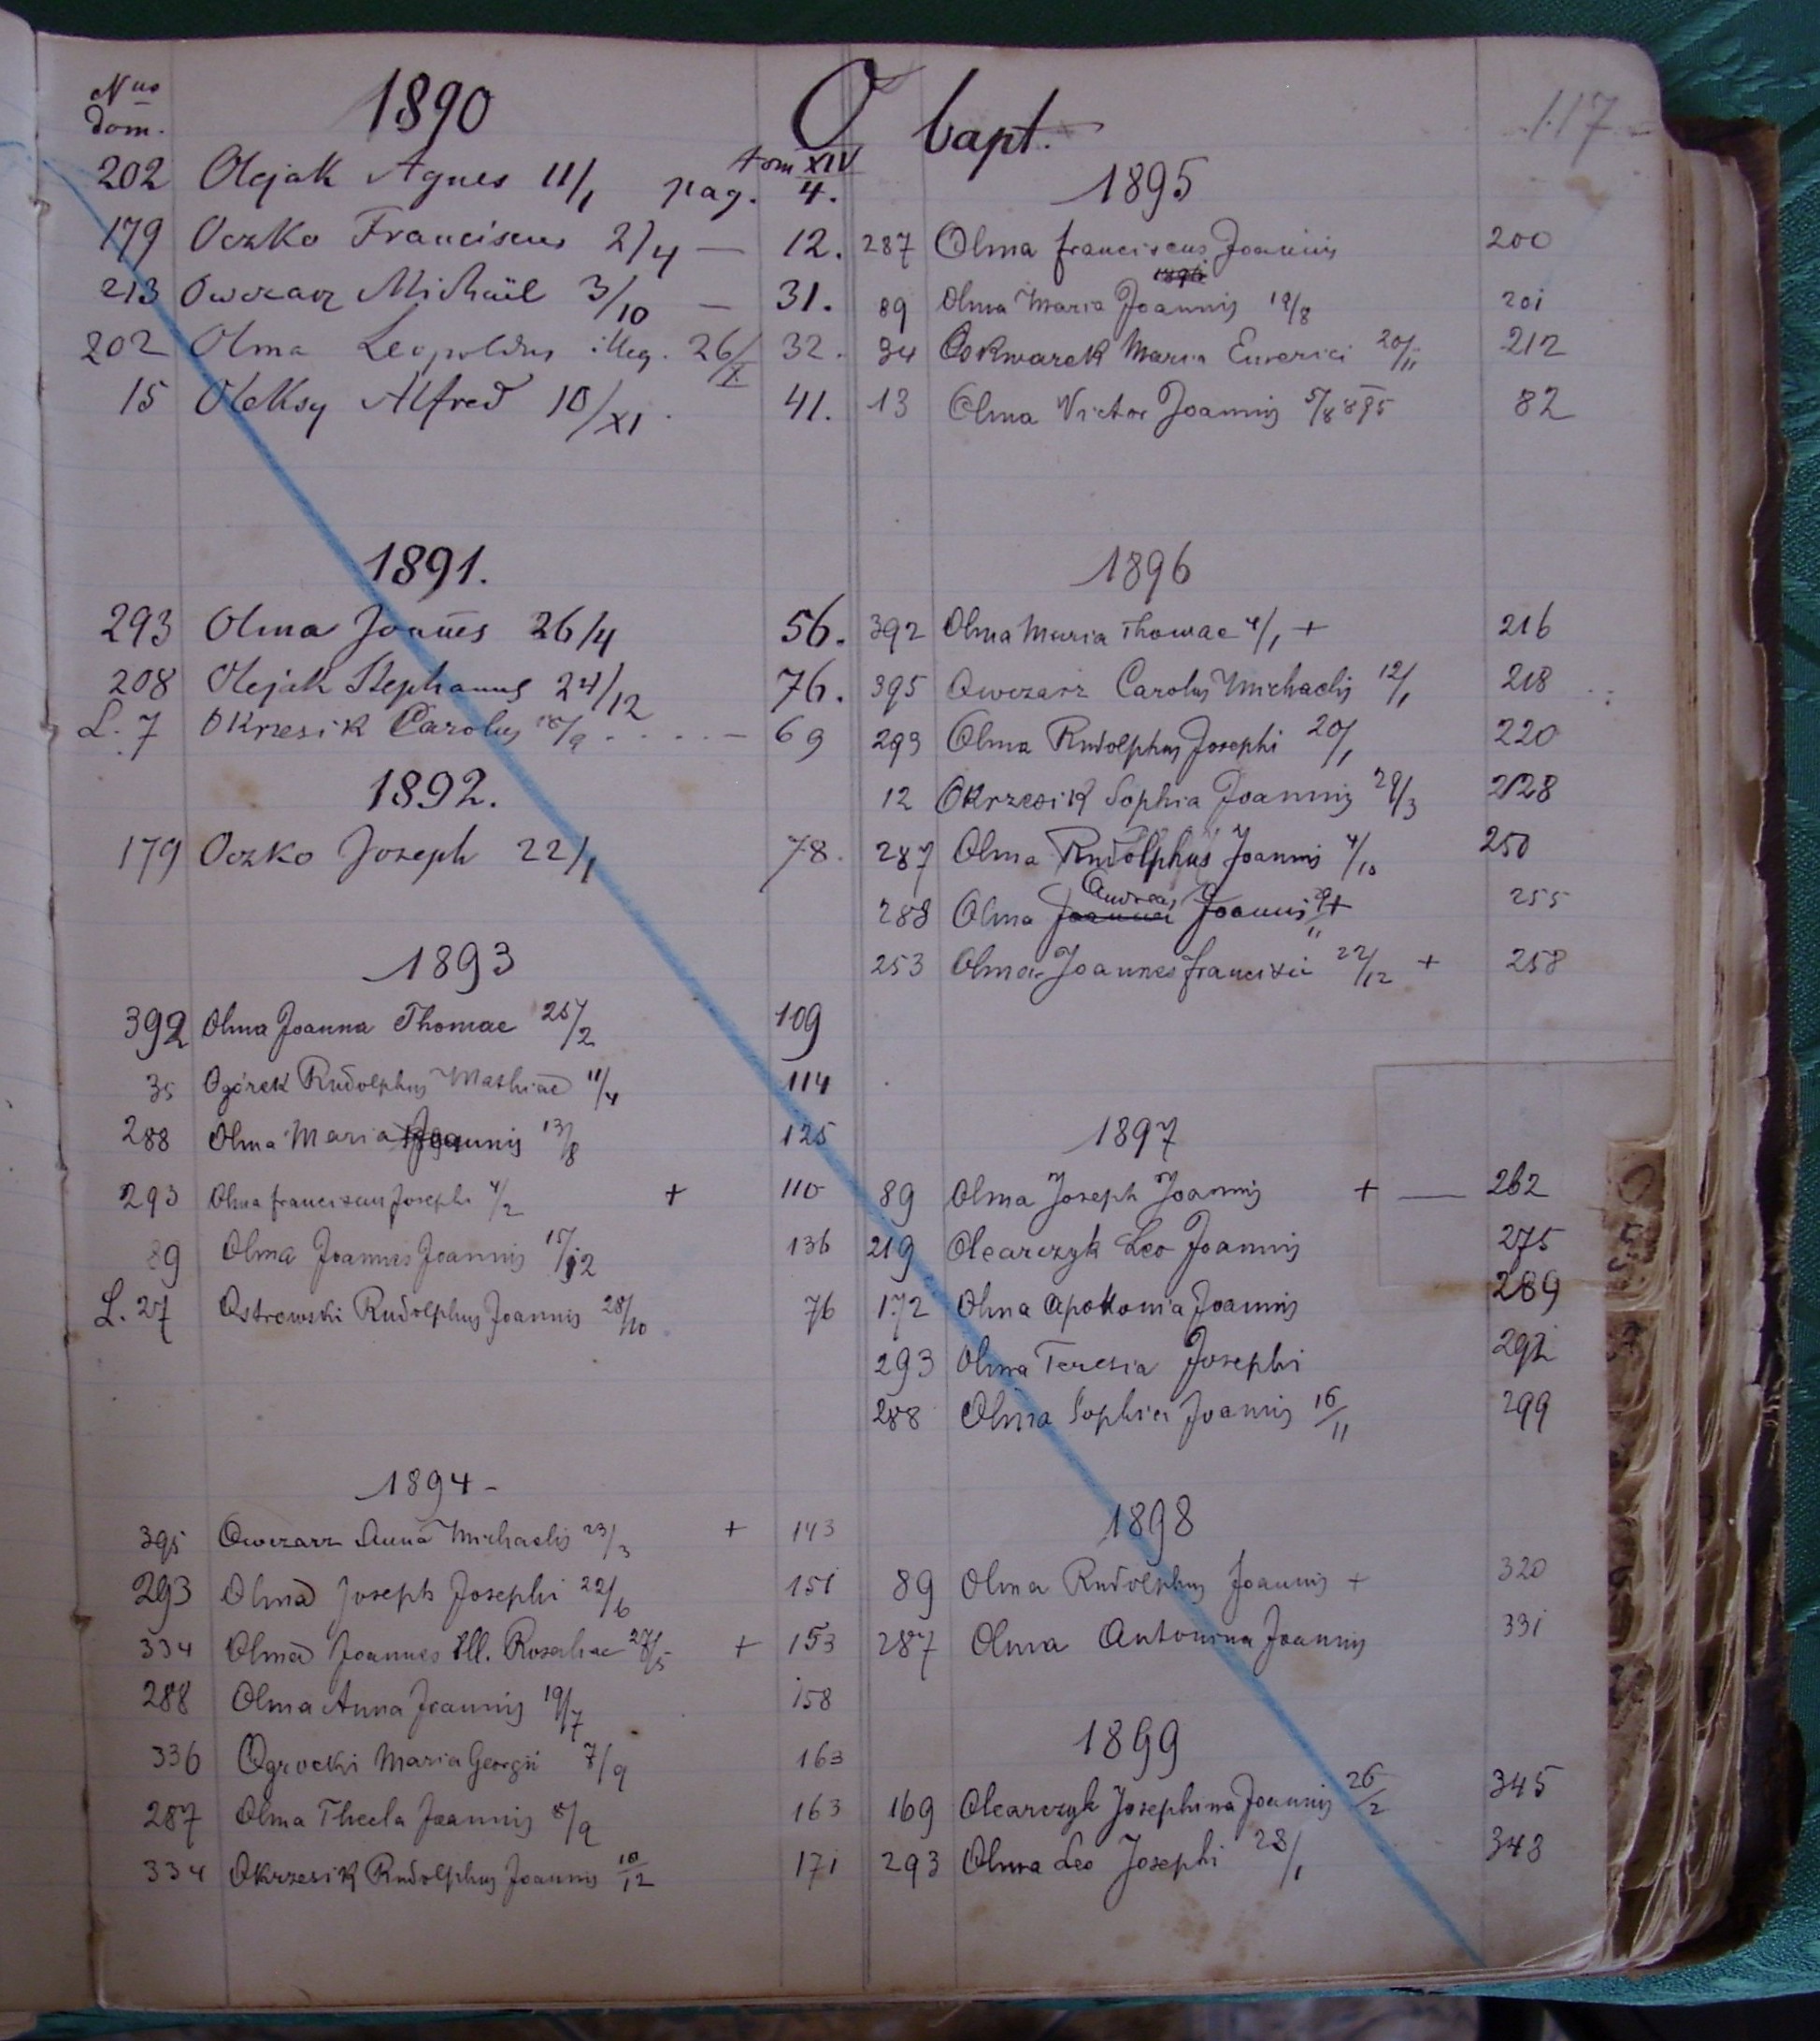 Nus dom. 1890 O bapt. 117
tom XIV
202 Olejak Agnes 11/1 pag. 4.
179 Oczko Franciscus 2/4 — 12.
213 Owczarz Michael 3/10 — 31.
202 Olma Leopoldus illeg. 26/X 32.
15 Oleksy Alfred 10/XI. 41.
1891.
293 Olma Joannes 26/4 56.
208 Olejak Stephanus 24/12 76.
L. 7 Okrzesik Carolus /9 . . . . — 69
1892.
179 Oczko Joseph 22/1 78.
1893
392 Olma Joanna Thomae 25/2 109
35 Ogórek Rudolphus Mathiae 11/4 114
288 Olma Maria Joannis 13/8 125
293 Olma franciscus Josephi 4/2 + 110
89 Olma Joannes Joannis 15/12 136
L. 27 Ostrowski Rudolphus Joannis 28/10 76
1894 -
395 Owczarz Anna Michaelis 23/3 + 143
293 Olma Joseph Josephi 22/6 151
334 Olma Joannes Ill. Rosaliae 27/5 + 153
288 Olma Anna Joannis 19/7 158
336 Ogrocki Maria Georgii 7/9 163
287 Olma Thecla Joannis 8/9 163
334 Okrzesik Rudolphus Joannis 10/12 171
1895
287 Olma franciscus Joannis 200
89 Olma Maria Joannis 18/8 201
34 Maria Emerici 20/11 212
13 Olma Victor Joannis 5/8 895 82
1896
392 Olma Maria Thomae 4/1 + 216
395 Owczarz Carolus Michaelis 12/1 218
293 Olma Rudolphus Josephi 20/1 220
12 Okrzesik Sophia Joannis 29/3 228
287 Olma Rudolphus Joannis 4/10 250
288 Olma Andreas Joannis + 255
253 Olma Joannes francisci 22/12 + 258
1897
89 Olma Joseph Joannis + — 262
219 Olearczyk Leo Joannis 275
172 Olma Apollonia Joannis 289
293 Olma Teresia Josephi 292
288 Olma Sophia Joannis 16/11 299
1898
89 Olma Rudolphus Joannis + 320
287 Olma Antonina Joannis 331
1899
169 Olearczyk Josephina Joannis 26/2 345
293 Olma Leo Josephi 28/1 343